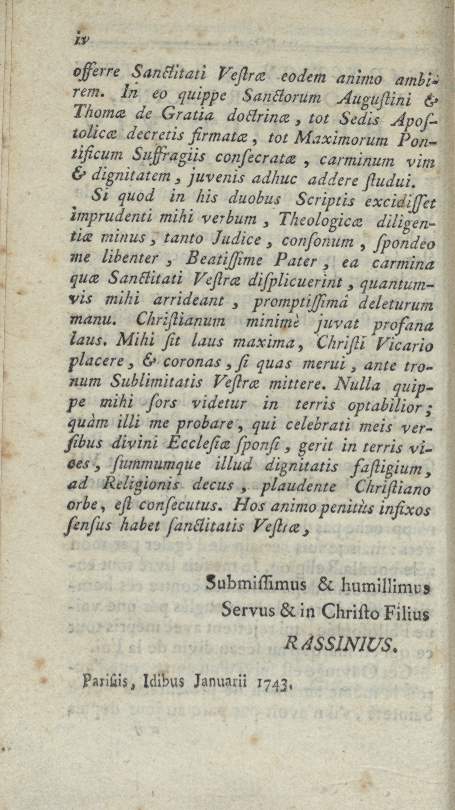 iv
offerre Sanctitati Vestræ eodem animo ambi-
rem. In eo quippe Sanctorum Augustini &
Thomæ de Gratia doctrinæ, tot Sedis Apoſ-
tolicæ decretis firmatæ, tot Maximorum Pon-
tificum Suffragiis conſecratæ, carminum vim
& dignitatem, juvenis adhuc addere ſtudui.
Si quod in his duobus Scriptis excidiſſet
imprudenti mihi verbum, Theologicæ diligen-
tiæ minus, tanto Judice, conſonum, ſpondeo
me libenter, Beatiſſime Pater, ea carmina
quæ Sanctitati Veſtræ diſplicuerint, quantum-
vis mihi arrideant, promptiſſimâ deleturum
manu. Chriſtianum minimè juvat profana
laus. Mihi ſit laus maxima, Chriſti Vicario
placere, & coronas, ſi quas merui, ante tro-
num Sublimitatis Veſtræ mittere. Nulla quip-
pe mihi ſors videtur in terris optabilior;
quàm illi me probare, qui celebrati meis ver-
ſibus divini Eccleſiæ ſponſi, gerit in terris vi-
ces, ſummumque illud dignitatis faſtigium,
ad Religionis decus, plaudente Chriſtiano
orbe, eſt conſecutus. Hos animo penitùs infixos
ſenſus habet ſanctitatis Veſtræ,
Submiſſimus & humillimus
Servus & in Chriſto Filius
RASSINIUS.
Pariſiis, Idibus Januarii 1743.